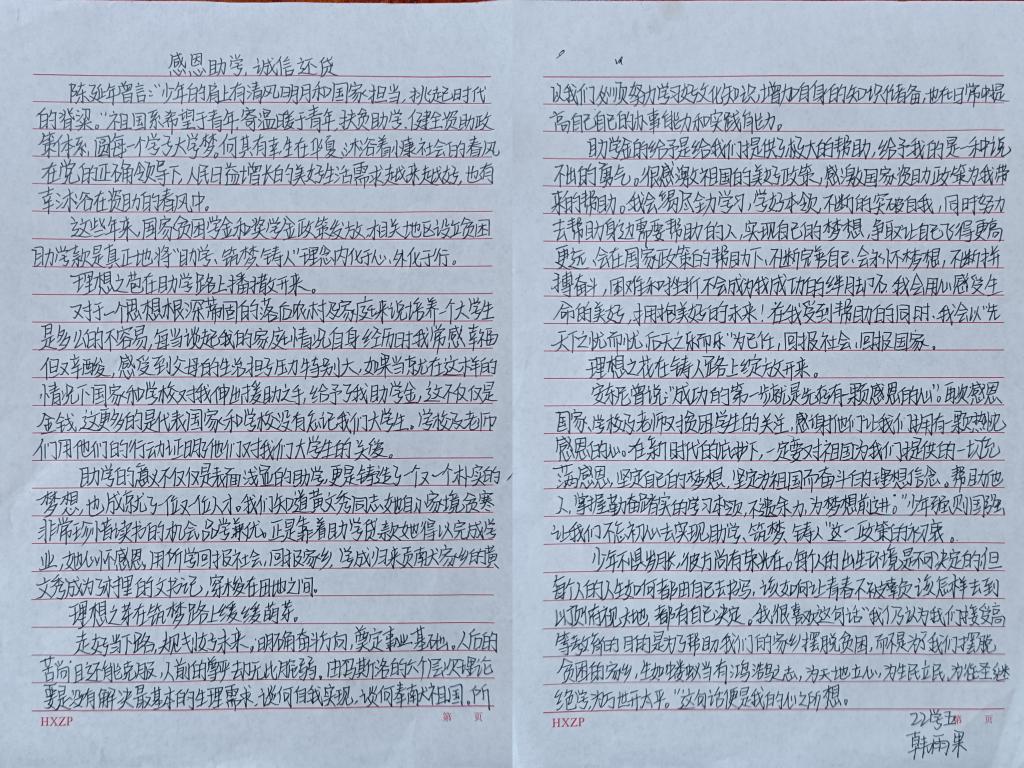 感恩助学,诚信还贷
陈延年曾言:"少年的肩上有清风明月和国家担当,挑起时代
的脊梁。"祖国系希望于青年,寄温暖于青年,扶贫助学,健全资助政
策体系,圆每一个学子大学梦。何其有幸生在华夏,沐浴着小康社会的春风
在党的正确领导下,人民日益增长的美好生活需求越来越好,也有
幸沐浴在资助的春风中。
这些年来,国家贫困学金和奖学金政策发放,相关地区设立贫困
助学款是真正地将"助学、筑梦、铸人"理念内化于心,外化于行。
理想之苞在助学路上播撒开来。
对于一个思想根深蒂固的落后农村及家庭来说培养一个大学生
是多么的不容易,每当谈起我的家庭情况自身经历时我常感幸福
但又辛酸,感受到父母的生活担子压力特别大,如果当就在这样的
情况下国家和学校又对我伸出援助之手,给予了我助学金,这不仅仅是
金钱,这更多的是代表国家和学校没有忘记我们大学生。学校及老师
们用他们的行动证明了他们对我们大学生的关爱。
助学的意义不仅仅是表面浅显的助学,更是铸造了一个又一个朴实的
梦想,也成就了一位又一位人才。我们知道黄文秀同志她自小家境贫寒
非常珍惜读书的机会,品学兼优。正是靠着助学贷款她得以完成学
业,她心怀感恩,用所学回报社会,回报家乡,学成归来贡献家乡的黄
文秀成为乡村里的文书记,穿梭在田地之间。
理想之芽在筑梦路上缓缓萌芽。
走好当下路,规划好未来,明确奋斗方向,奠定事业基础。人后的
苦尚且还能克服,人前的尊严却无比脆弱。由马斯洛的六个层次理论
要是没有解决最基本的生理需求,谈何自我实现,谈何奉献祖国。所
HXZP 第 页
以我们必须努力学习好文化知识,增加自身的知识储备,也在日常中提
高自己自己的办事能力和实践能力。
助学金的给予是给我们提供了极大的帮助,给予我的是一种说
不出的勇气。很感激祖国的美好政策,感激国家资助政策为我带
来的帮助。我会竭尽全力学习,学好本领,不断的突破自我,同时努力
去帮助身边需要帮助的人,实现自己的梦想,争取让自己飞得更高
更远,会在国家政策的帮助下,不断完善自己,会补怀梦想,不断拼
搏奋斗,困难和挫折不会成为我成功的绊脚石,我会用心感受生
命的美好,拥抱美好的未来!在我受到帮助的同时,我会以"先
天下之忧而忧,后天之乐而乐"为己行,回报社会,回报国家。
理想之花在铸人路上绽放开来。
安东尼曾说:"成功的第一步就是先存有一颗感恩的心"。再次感恩
国家、学校及老师对贫困学生的关注,感谢他们让我们拥有一颗热忱
感恩的心。在新时代的庇护下,一定要对祖国为我们提供的一切充
满感恩,坚定自己的梦想,坚定为祖国而奋斗的理想信念。帮助他
人,掌握勤奋踏实的学习本领,不遗余力,为梦想前进:"少年强则国强
让我们不忘初心去实现助学、筑梦、铸人"这一政策的初衷。
少年不惧岁月长,彼方尚有荣光在。每个人的出生环境是不可决定的,但
每个人的人生如何都由自己去书写,该如何让青春不被辜负,该怎样去到
以及所有现大地,都有自己决定。我很喜欢这句话"我仍认为我们接受高
等教育的目的是为了帮助我们的家乡摆脱贫困,而不是为了我们摆脱
贫困的家乡,生如蝼蚁当有鸿鹄之志,为天地立心,为生民立民,为往圣继
绝学,为万世开太平。"这句话便是我的心之所想。
22学五
韩雨果
HXZP 第 页